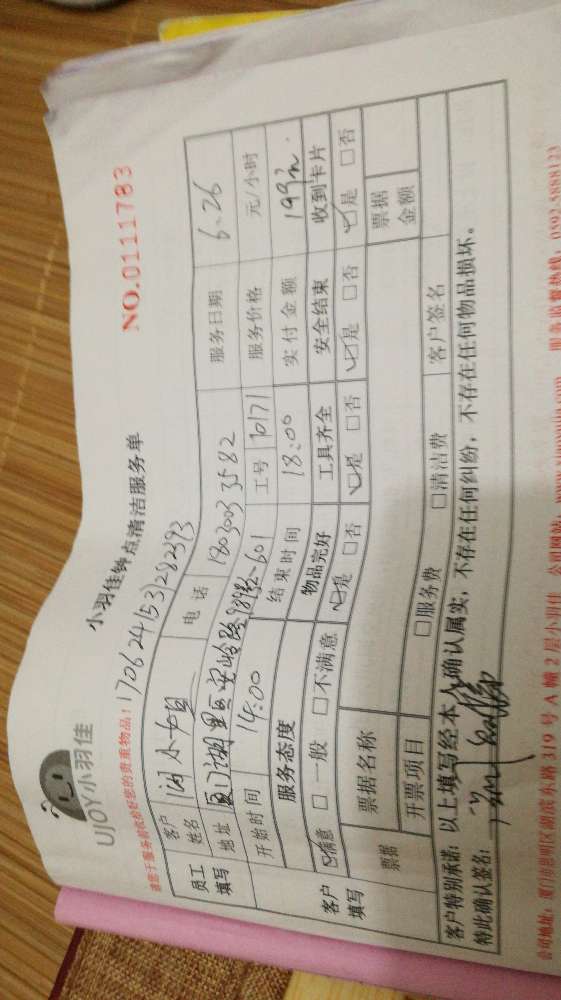 UJOY小羽佳
小羽佳钟点清洁服务单
NO.0111783
请您于服务前收拾好您的贵重物品!
1706241531282393
员工填写 客户姓名 小姐 电话 18030033582 服务日期 6.26
地址 厦门湖里区安岭路 -601 工号 10171 服务价格 元/小时
开始时间 14:00 结束时间 18:00 实付金额 199元.
客户填写 服务态度 物品完好 工具齐全 安全结束 收到卡片
☑满意 □一般 □不满意 ☑是 □否 ☑是 □否 ☑是 □否 ☑是 □否
票据 票据名称 票据金额
开票项目 □服务费 □清洁费 客户签名
客户特别承诺: 以上填写经本人确认属实,不存在任何纠纷,不存在任何物品损坏。
特此确认签名:
公司地址: 厦门市思明区湖滨东路 319 号 A 幢 2 层小羽佳 公司网站: 服务监督热线: 0592-5888123